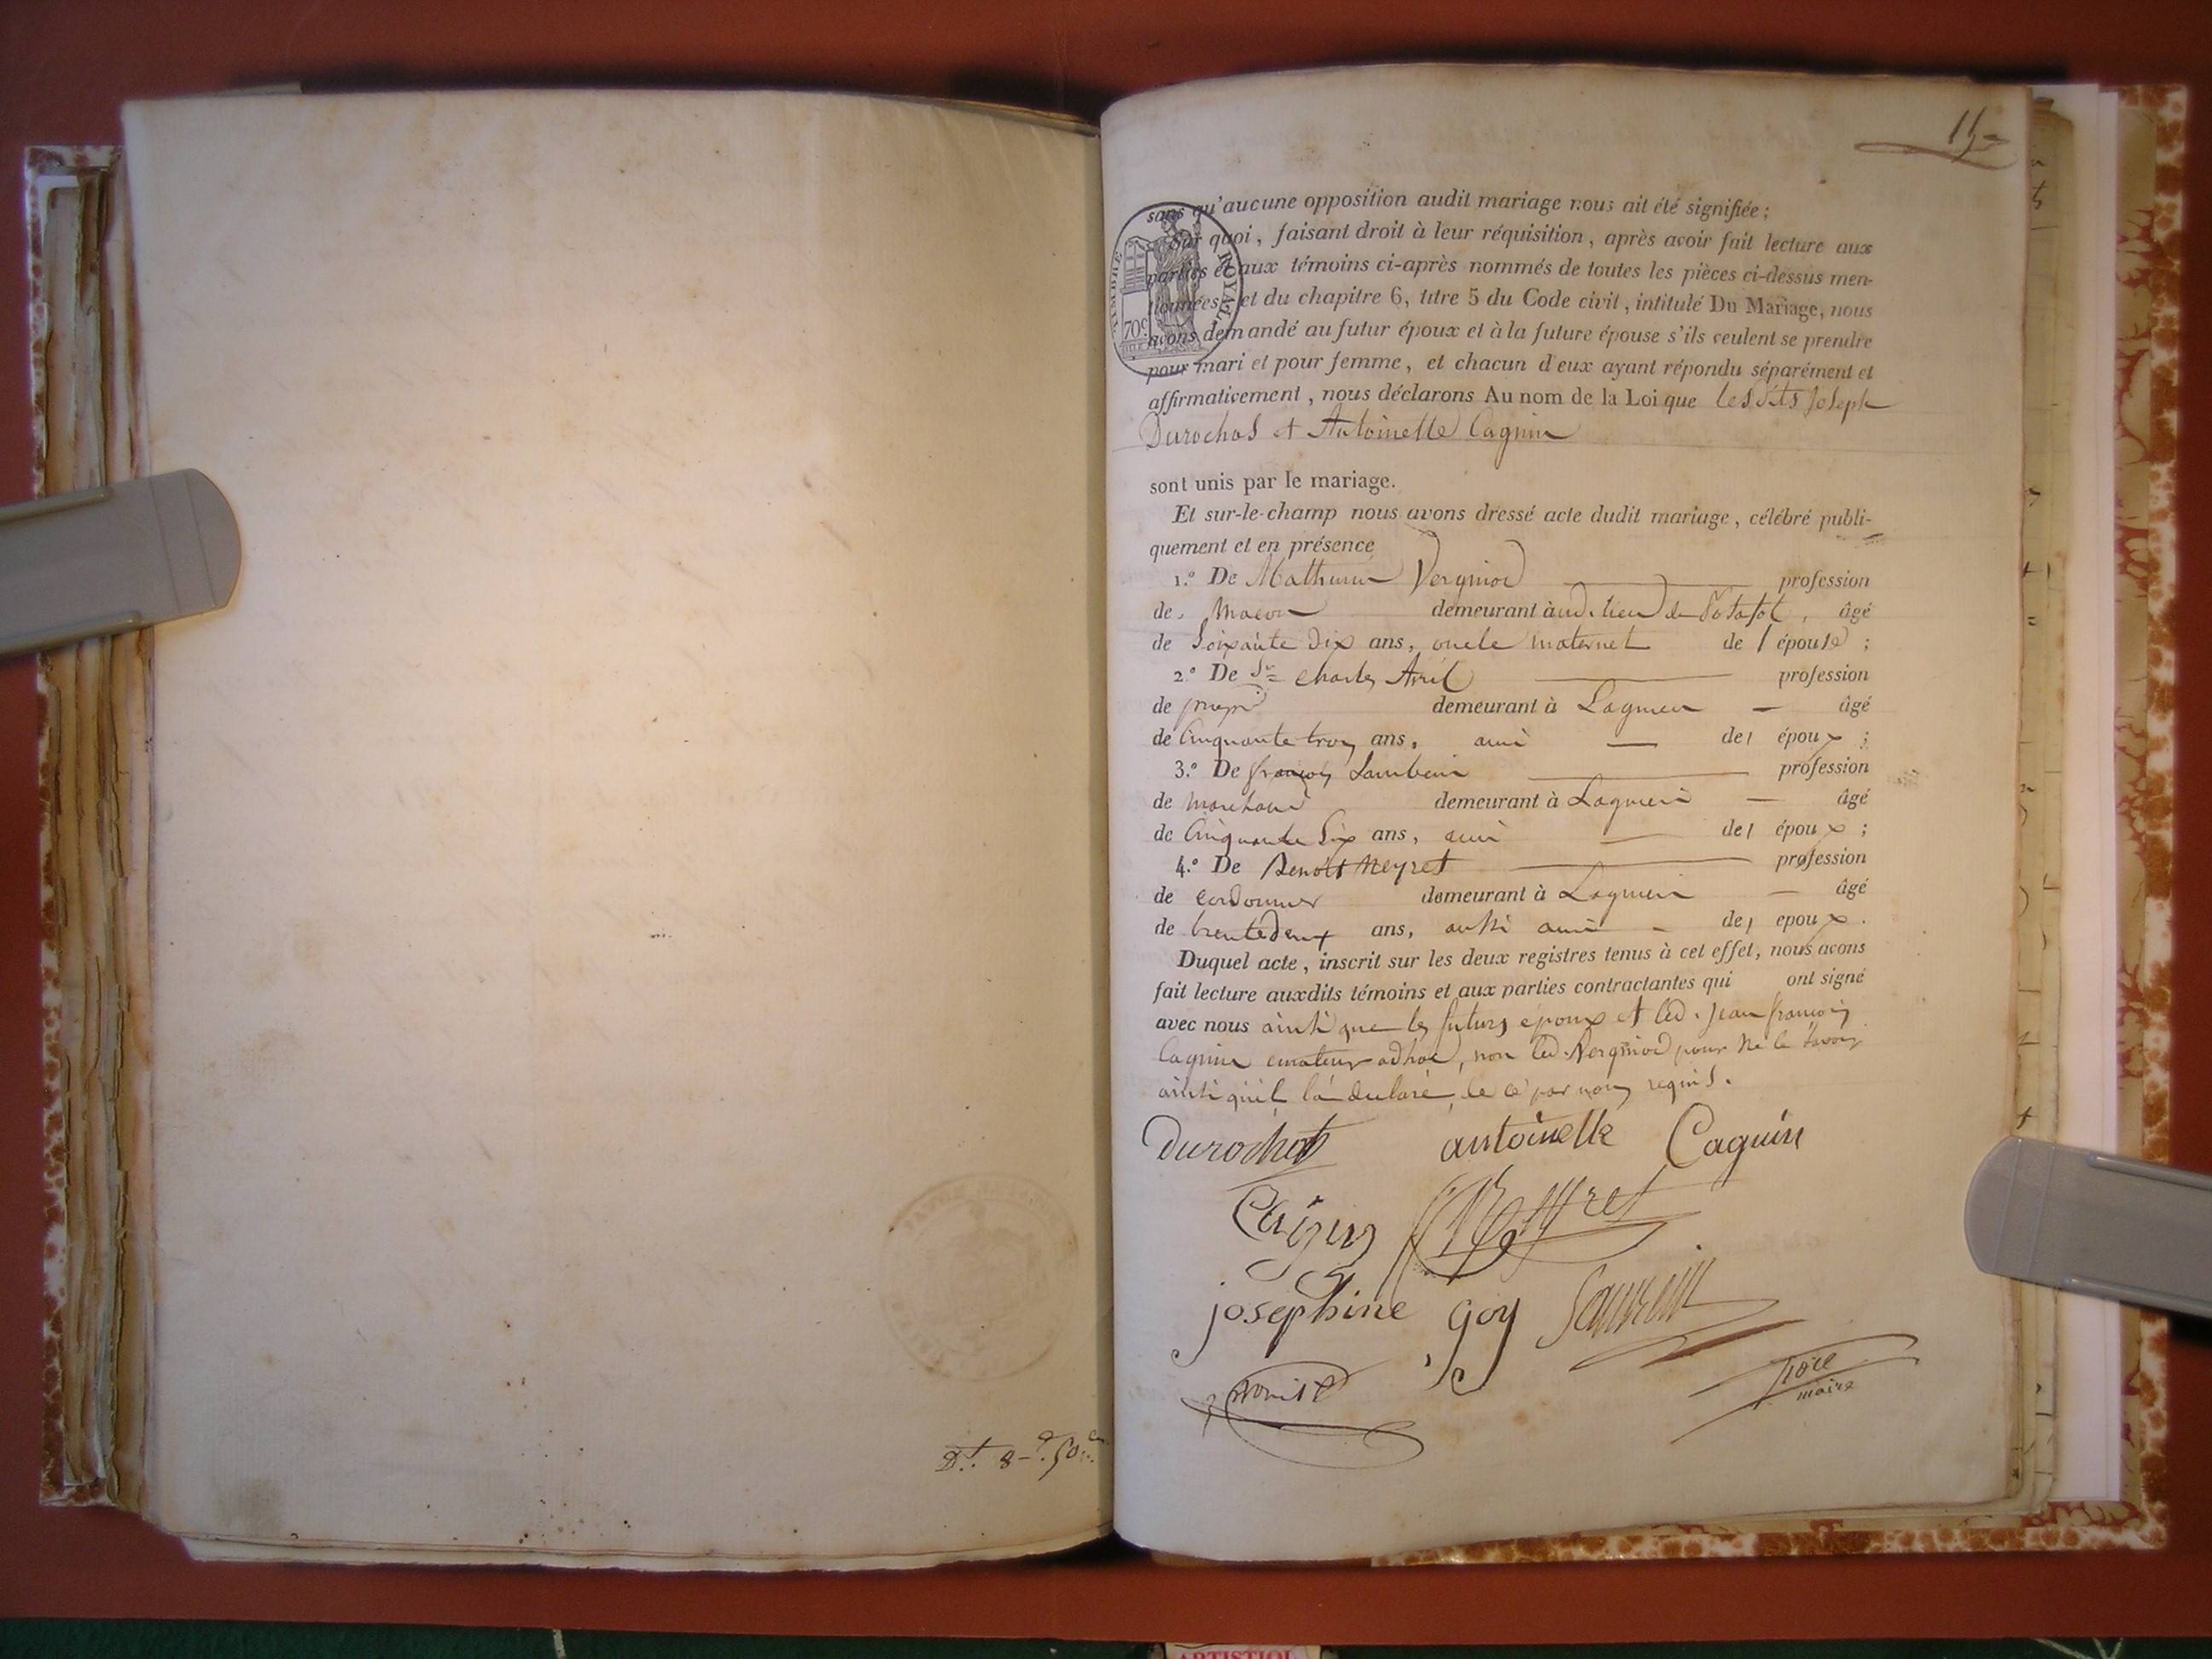 15
sans qu'aucune opposition audit mariage nous ait été signifiée ;
Sur quoi, faisant droit à leur réquisition, après avoir fait lecture aux
parties et aux témoins ci-après nommés de toutes les pièces ci-dessus men-
tionnées, et du chapitre 6, titre 5 du Code civil, intitulé Du Mariage, nous
avons demandé au futur époux et à la future épouse s'ils veulent se prendre
pour mari et pour femme, et chacun d'eux ayant répondu séparément et
affirmativement, nous déclarons Au nom de la Loi que lesdits Joseph
Durochat et Antoinette Cagnin
TIMBRE ROYAL
70c
sont unis par le mariage.
Et sur-le-champ nous avons dressé acte dudit mariage, célébré publi-
quement et en présence
1.º De Mathurin Vergniod profession
de maçon demeurant à udit lieu de âgé
de Soixante dix ans, oncle maternel de l épouse ;
2.º De Sr Charles Avril profession
de propre demeurant à Lagnieu âgé
de Cinquante trois ans, ami de l époux ;
3.º De françois profession
de marchand demeurant à Lagnieu âgé
de Cinquante Six ans, ami de l époux ;
4.º De Benoît Neyret profession
de cordonnier demeurant à Lagnieu âgé
de trente deux ans, aussi ami de l époux.
Duquel acte, inscrit sur les deux registres tenus à cet effet, nous avons
fait lecture auxdits témoins et aux parties contractantes qui ont signé
avec nous ainsi que les futurs epoux et led. Jean françois
Cagnin curateur adhoc, non led. Vergniod pour ne le savoir
ainsi qu'il l'a déclaré, de ce par nous requis.
Durochat antoinette Caguin
Neyret
josephine goy
maire
Dt. 8 50
ARTISTIQU